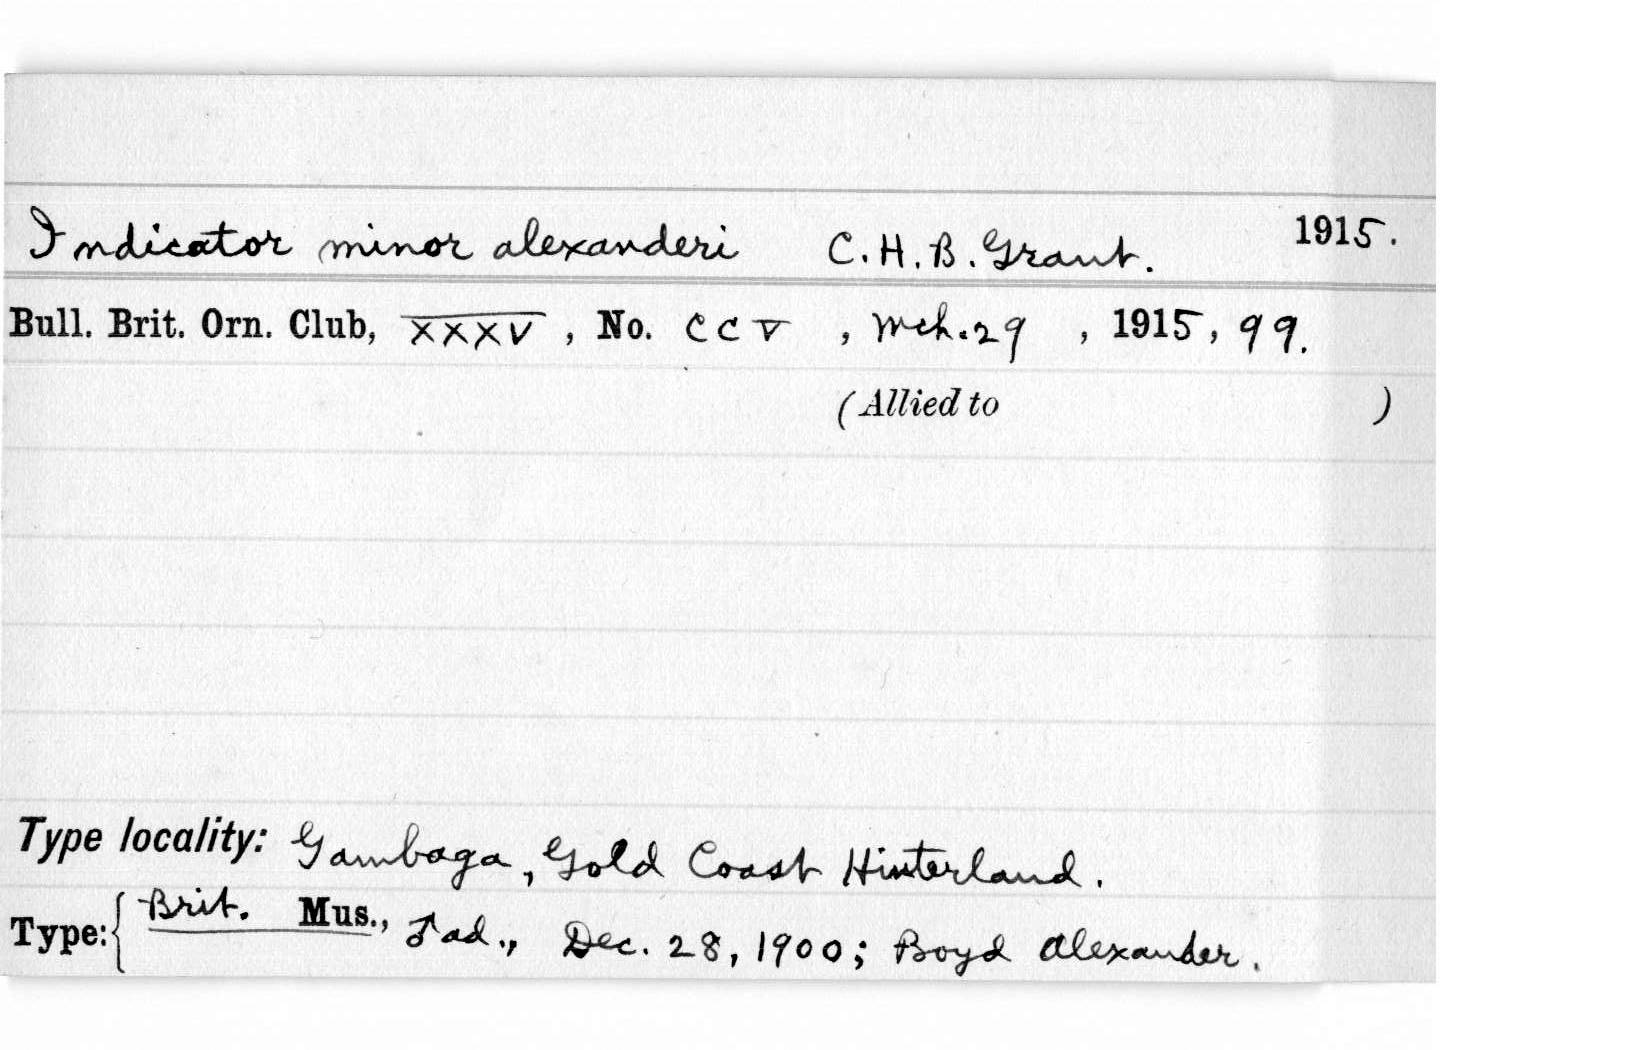 Indicator minor alexanderi C.H.B. Grant. 1915.
Bull. Brit. Orn. Club, XXXV, No. CCV, Mch. 29, 1915, 99.
(Allied to )
Type locality: Gambaga, Gold Coast Hinterland.
Type: { Brit. Mus., ♂ ad., Dec. 28, 1900; Boyd Alexander.